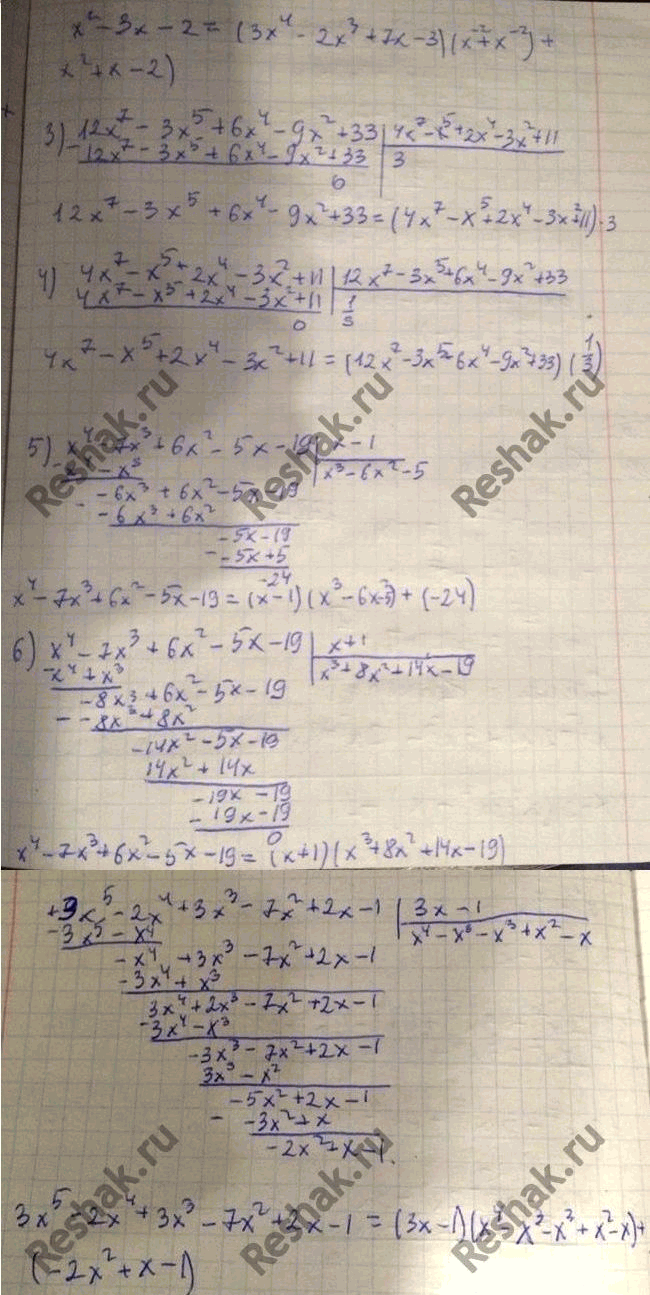 x⁴ - 3x - 2 = (3x⁴ - 2x³ + 7x - 3)(x⁻² + x⁻²) +
x² + x - 2)
3) 12x⁷ - 3x⁵ + 6x⁴ - 9x² + 33 | 4x⁷ - x⁵ + 2x⁴ - 3x² + 11
12x⁷ - 3x⁵ + 6x⁴ - 9x² + 33 | 3
0
12x⁷ - 3x⁵ + 6x⁴ - 9x² + 33 = (4x⁷ - x⁵ + 2x⁴ - 3x² + 11)·3
4) 4x⁷ - x⁵ + 2x⁴ - 3x² + 11 | 12x⁷ - 3x⁵ + 6x⁴ - 9x² + 33
4x⁷ - x⁵ + 2x⁴ - 3x² + 11 | 1/3
0
4x⁷ - x⁵ + 2x⁴ - 3x² + 11 = (12x⁷ - 3x⁵ - 6x⁴ - 9x² + 33)(1/3)
Reshak.ru Reshak.ru Reshak.ru
5) x⁴ - 7x³ + 6x² - 5x - 19 | x - 1
x⁴ - x³ | x³ - 6x² - 5
- 6x³ + 6x² - 5x - 19
- - 6x³ + 6x²
- 5x - 19
- - 5x + 5
-24
x⁴ - 7x³ + 6x² - 5x - 19 = (x - 1)(x³ - 6x² - 5) + (-24)
6) x⁴ - 7x³ + 6x² - 5x - 19 | x + 1
- x⁴ + x³ | x³ + 8x² + 14x - 19
- 8x³ + 6x² - 5x - 19
- - 8x³ + 8x²
- 14x² - 5x - 19
14x² + 14x
- 19x - 19
- 19x - 19
0
x⁴ - 7x³ + 6x² - 5x - 19 = (x + 1)(x³ + 8x² + 14x - 19)
+3x⁵ - 2x⁴ + 3x³ - 7x² + 2x - 1 | 3x - 1
- 3x⁵ - x⁴ | x⁴ - x³ - x³ + x² - x
- x⁴ + 3x³ - 7x² + 2x - 1
- 3x⁴ + x³
3x⁴ + 2x³ - 7x² + 2x - 1
- 3x⁴ - x³
- 3x³ - 7x² + 2x - 1
3x³ - x²
- 5x² + 2x - 1
- - 3x² + x
- 2x² + x - 1.
Reshak.ru Reshak.ru Reshak.ru
3x⁵ - 2x⁴ + 3x³ - 7x² + 2x - 1 = (3x - 1)(x⁴ - x³ - x³ + x² - x) +
(-2x² + x - 1)